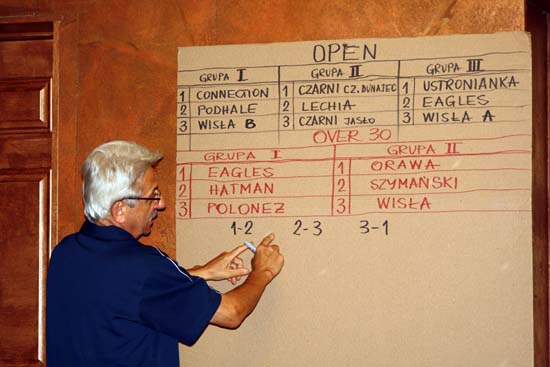 OPEN
GRUPA I GRUPA II GRUPA III
1 CONNECTION 1 CZARNI CZ. DUNAJEC 1 USTRONIANKA
2 PODHALE 2 LECHIA 2 EAGLES
3 WISŁA B 3 CZARNI JASŁO 3 WISŁA A
OVER 30
GRUPA I GRUPA II
1 EAGLES 1 ORAWA
2 HATMAN 2 SZYMAŃSKI
3 POLONEZ 3 WISŁA
1-2 2-3 3-1